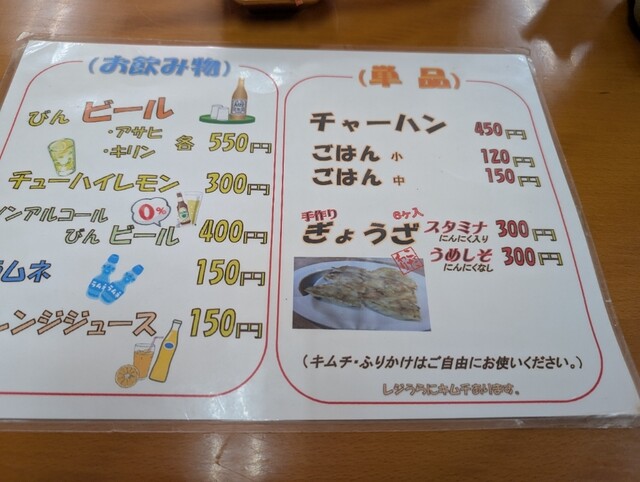 (お飲み物)
びん ビール
・アサヒ
・キリン
各 550円
チューハイレモン 300円
ノンアルコール
0%
びん ビール 400円
ラムネ 150円
レンジジュース 150円
(単品)
チャーハン 450円
ごはん 小 120円
ごはん 中 150円
手作り 6ヶ入
ぎょうざ
スタミナ 300円
にんにく入り
うめしそ 300円
にんにくなし
(キムチ・ふりかけはご自由にお使いください。)
レジうらにキムチあります。